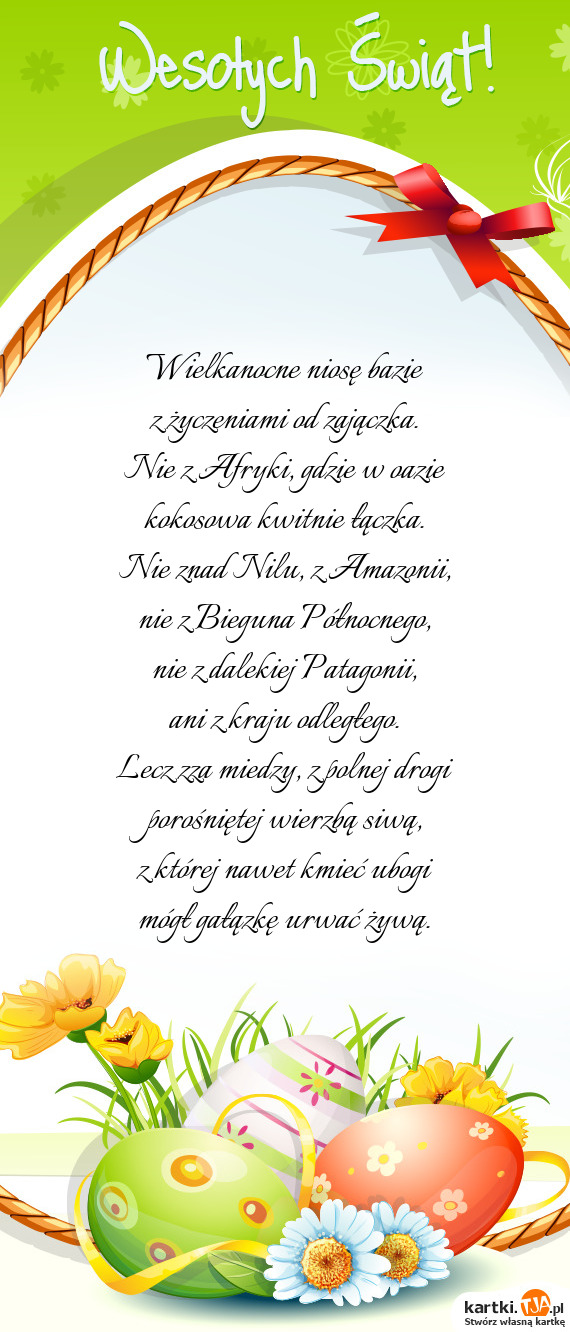 Wesołych Świąt!
Wielkanocne niosę bazie
z życzeniami od zajączka.
Nie z Afryki, gdzie w oazie
kokosowa kwitnie łączka.
Nie znad Nilu, z Amazonii,
nie z Bieguna Północnego,
nie z dalekiej Patagonii,
ani z kraju odległego.
Lecz zza miedzy, z polnej drogi
porośniętej wierzbą siwą,
z której nawet kmieć ubogi
mógł gałązkę urwać żywą.
kartki.TJA.pl
Stwórz własną kartkę